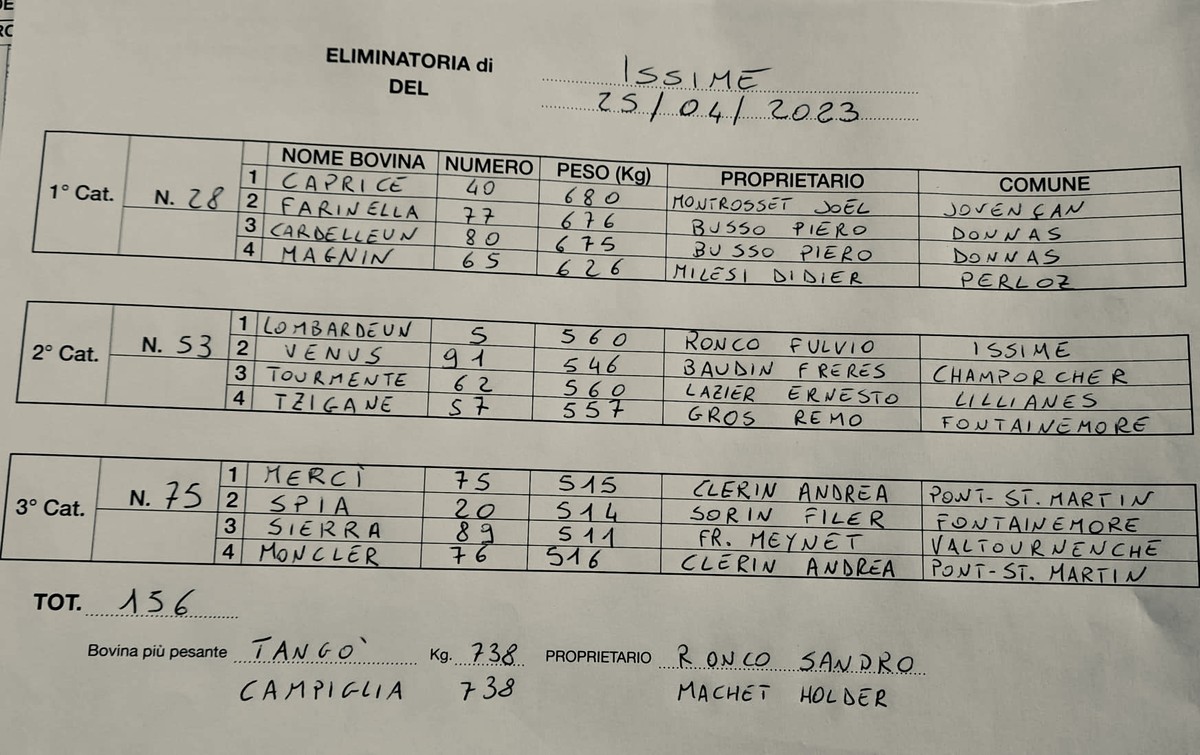 ELIMINATORIA di ISSIME
DEL 25/04/2023
NOME BOVINA NUMERO PESO (Kg) PROPRIETARIO COMUNE
1° Cat. N. 28
1 CAPRICE 40 680 MONTROSSET JOEL JOVENÇAN
2 FARINELLA 77 676 BUSSO PIERO DONNAS
3 CARDELLEUN 80 675 BUSSO PIERO DONNAS
4 MAGNIN 65 626 MILESI DIDIER PERLOZ
2° Cat. N. 53
1 LOMBARDEUN 5 560 RONCO FULVIO ISSIME
2 VENUS 91 546 BAUDIN FRERES CHAMPORCHER
3 TOURMENTE 62 560 LAZIER ERNESTO LILLIANES
4 TZIGANE 57 557 GROS REMO FONTAINEMORE
3° Cat. N. 75
1 MERCÌ 75 515 CLERIN ANDREA PONT-ST. MARTIN
2 SPIA 20 514 SORIN FILER FONTAINEMORE
3 SIERRA 89 511 FR. MEYNET VALTOURNENCHE
4 MONCLER 76 516 CLERIN ANDREA PONT-ST. MARTIN
TOT. 156
Bovina più pesante TANGO' Kg. 738 PROPRIETARIO RONCO SANDRO
CAMPIGLIA 738 MACHET HOLDER